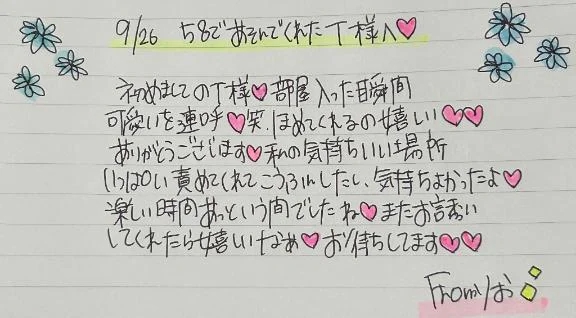 9/26 58であそんでくれたT様へ♡
初めましてのT様♡部屋入った瞬間
可愛いを連呼♡笑 ほめてくれるの嬉しい♡♡
ありがとうございます♡私の気持ちいい場所
いっぱい責めてくれてこうふんしたし、気持ちよかったよ♡
楽しい時間あっという間でしたね♡またお誘い
してくれたら嬉しいなぁ♡お待ちしてます♡♡
From りお